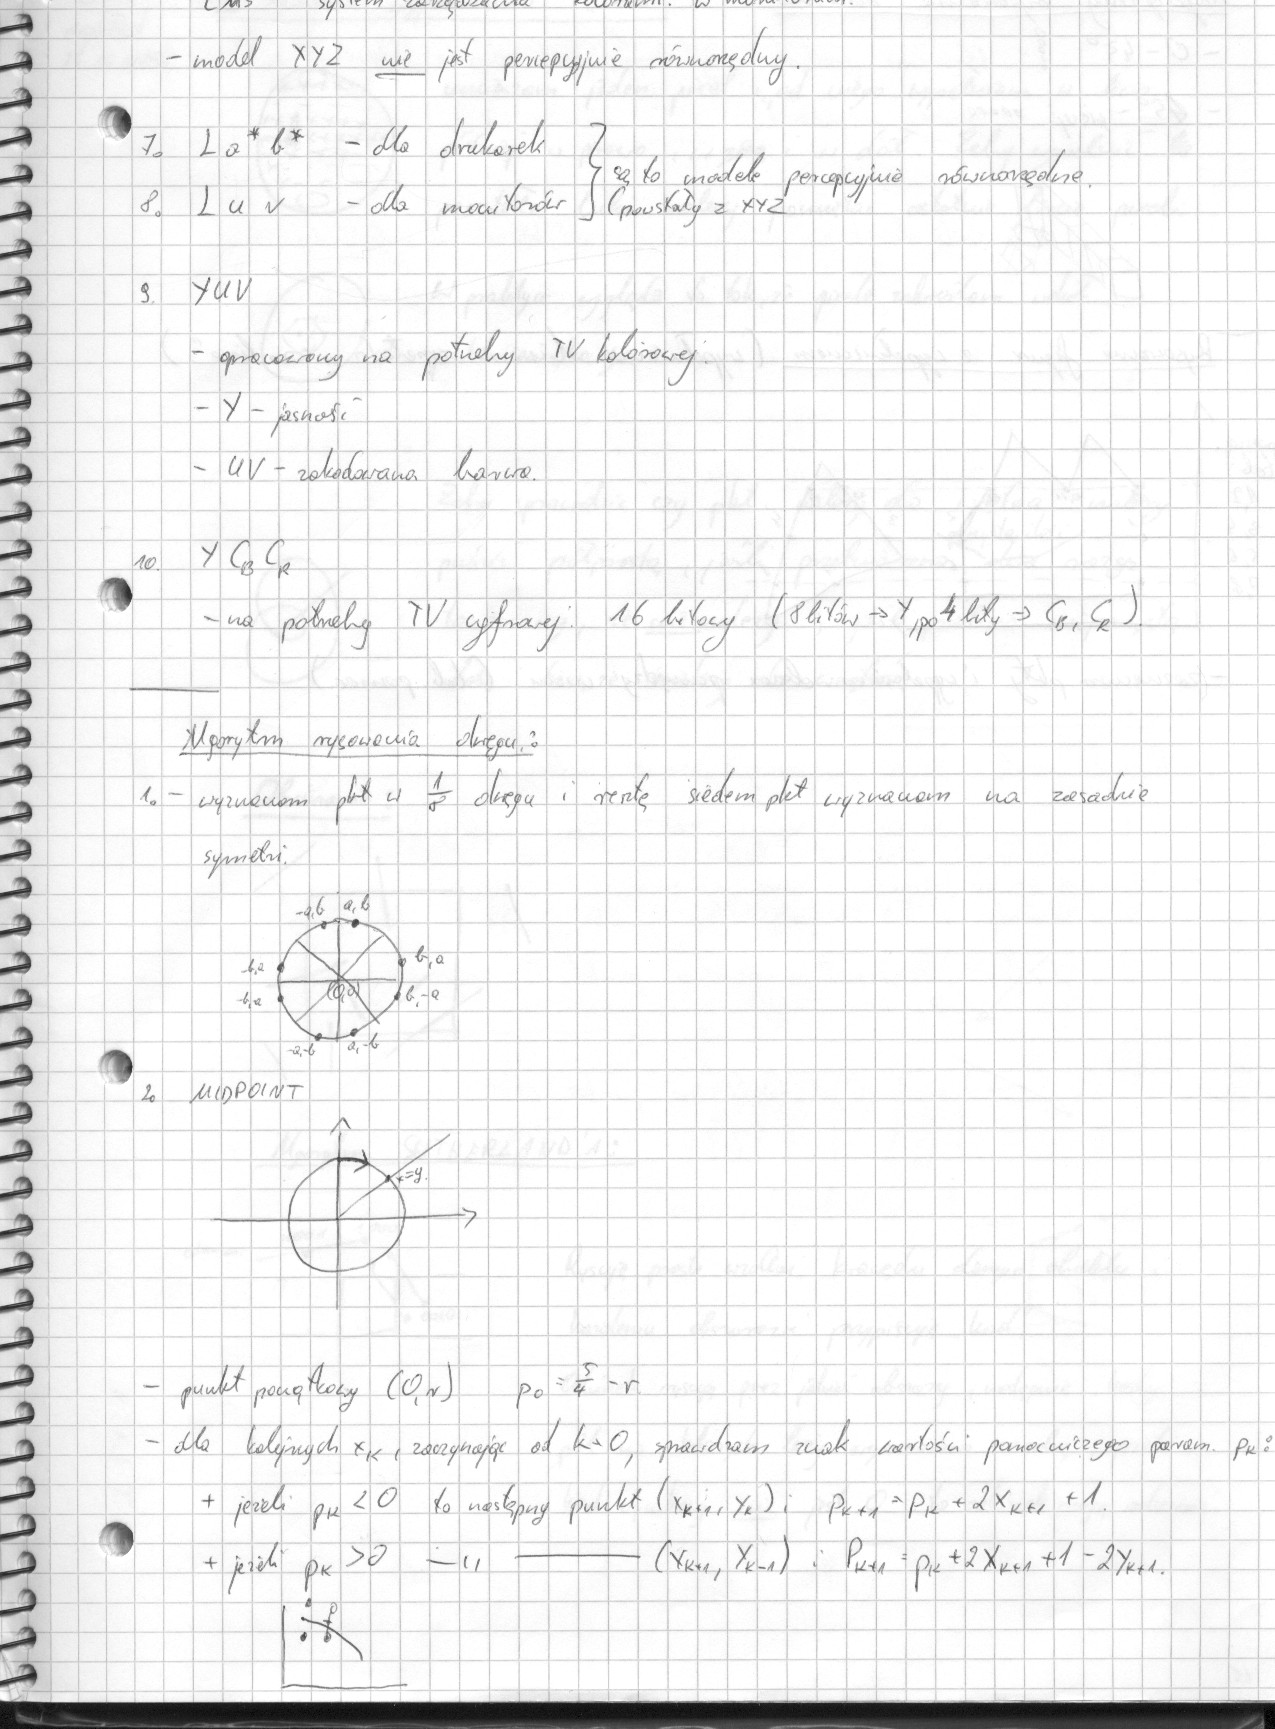 CMS system zarządzania kolorami. w monitorach.
- model XYZ nie jest percepcyjnie równorzędny.
7. L a* b* - dla drukarek
są to modele percepcyjnie równorzędne.
8. L u v - dla monitorów (powstały z XYZ
9. YUV
- opracowany na potrzeby TV kolorowej.
- Y - jasność
- UV - zakodowana barwa.
10. Y CB CR
- na potrzeby TV cyfrowej: 16 bitowy (8 bitów → Y, po 4 bity → CB, CR).
Algorytm rysowania okręgu:
1. - wyznaczam pkt w 1/8 okręgu i resztę siedem pkt wyznaczam na zasadzie
symetri.
-a,b a,b
-b,a b,a
(0,0)
-b,a b,-a
-a,-b a,-b
2. MIDPOINT
x=y.
- punkt początkowy (0,r) p0 = 5/4 - r.
- dla kolejnych xK, zaczynając od k=0, sprawdzam znak wartości pomocniczego param. pK:
+ jeżeli pK < 0 to następny punkt (xK+1, yK) i pK+1 = pK + 2xK+1 + 1.
+ jeżeli pK > 0 -„- (xK+1, yK-1) i PK+1 = pK + 2xK+1 + 1 - 2yK+1.